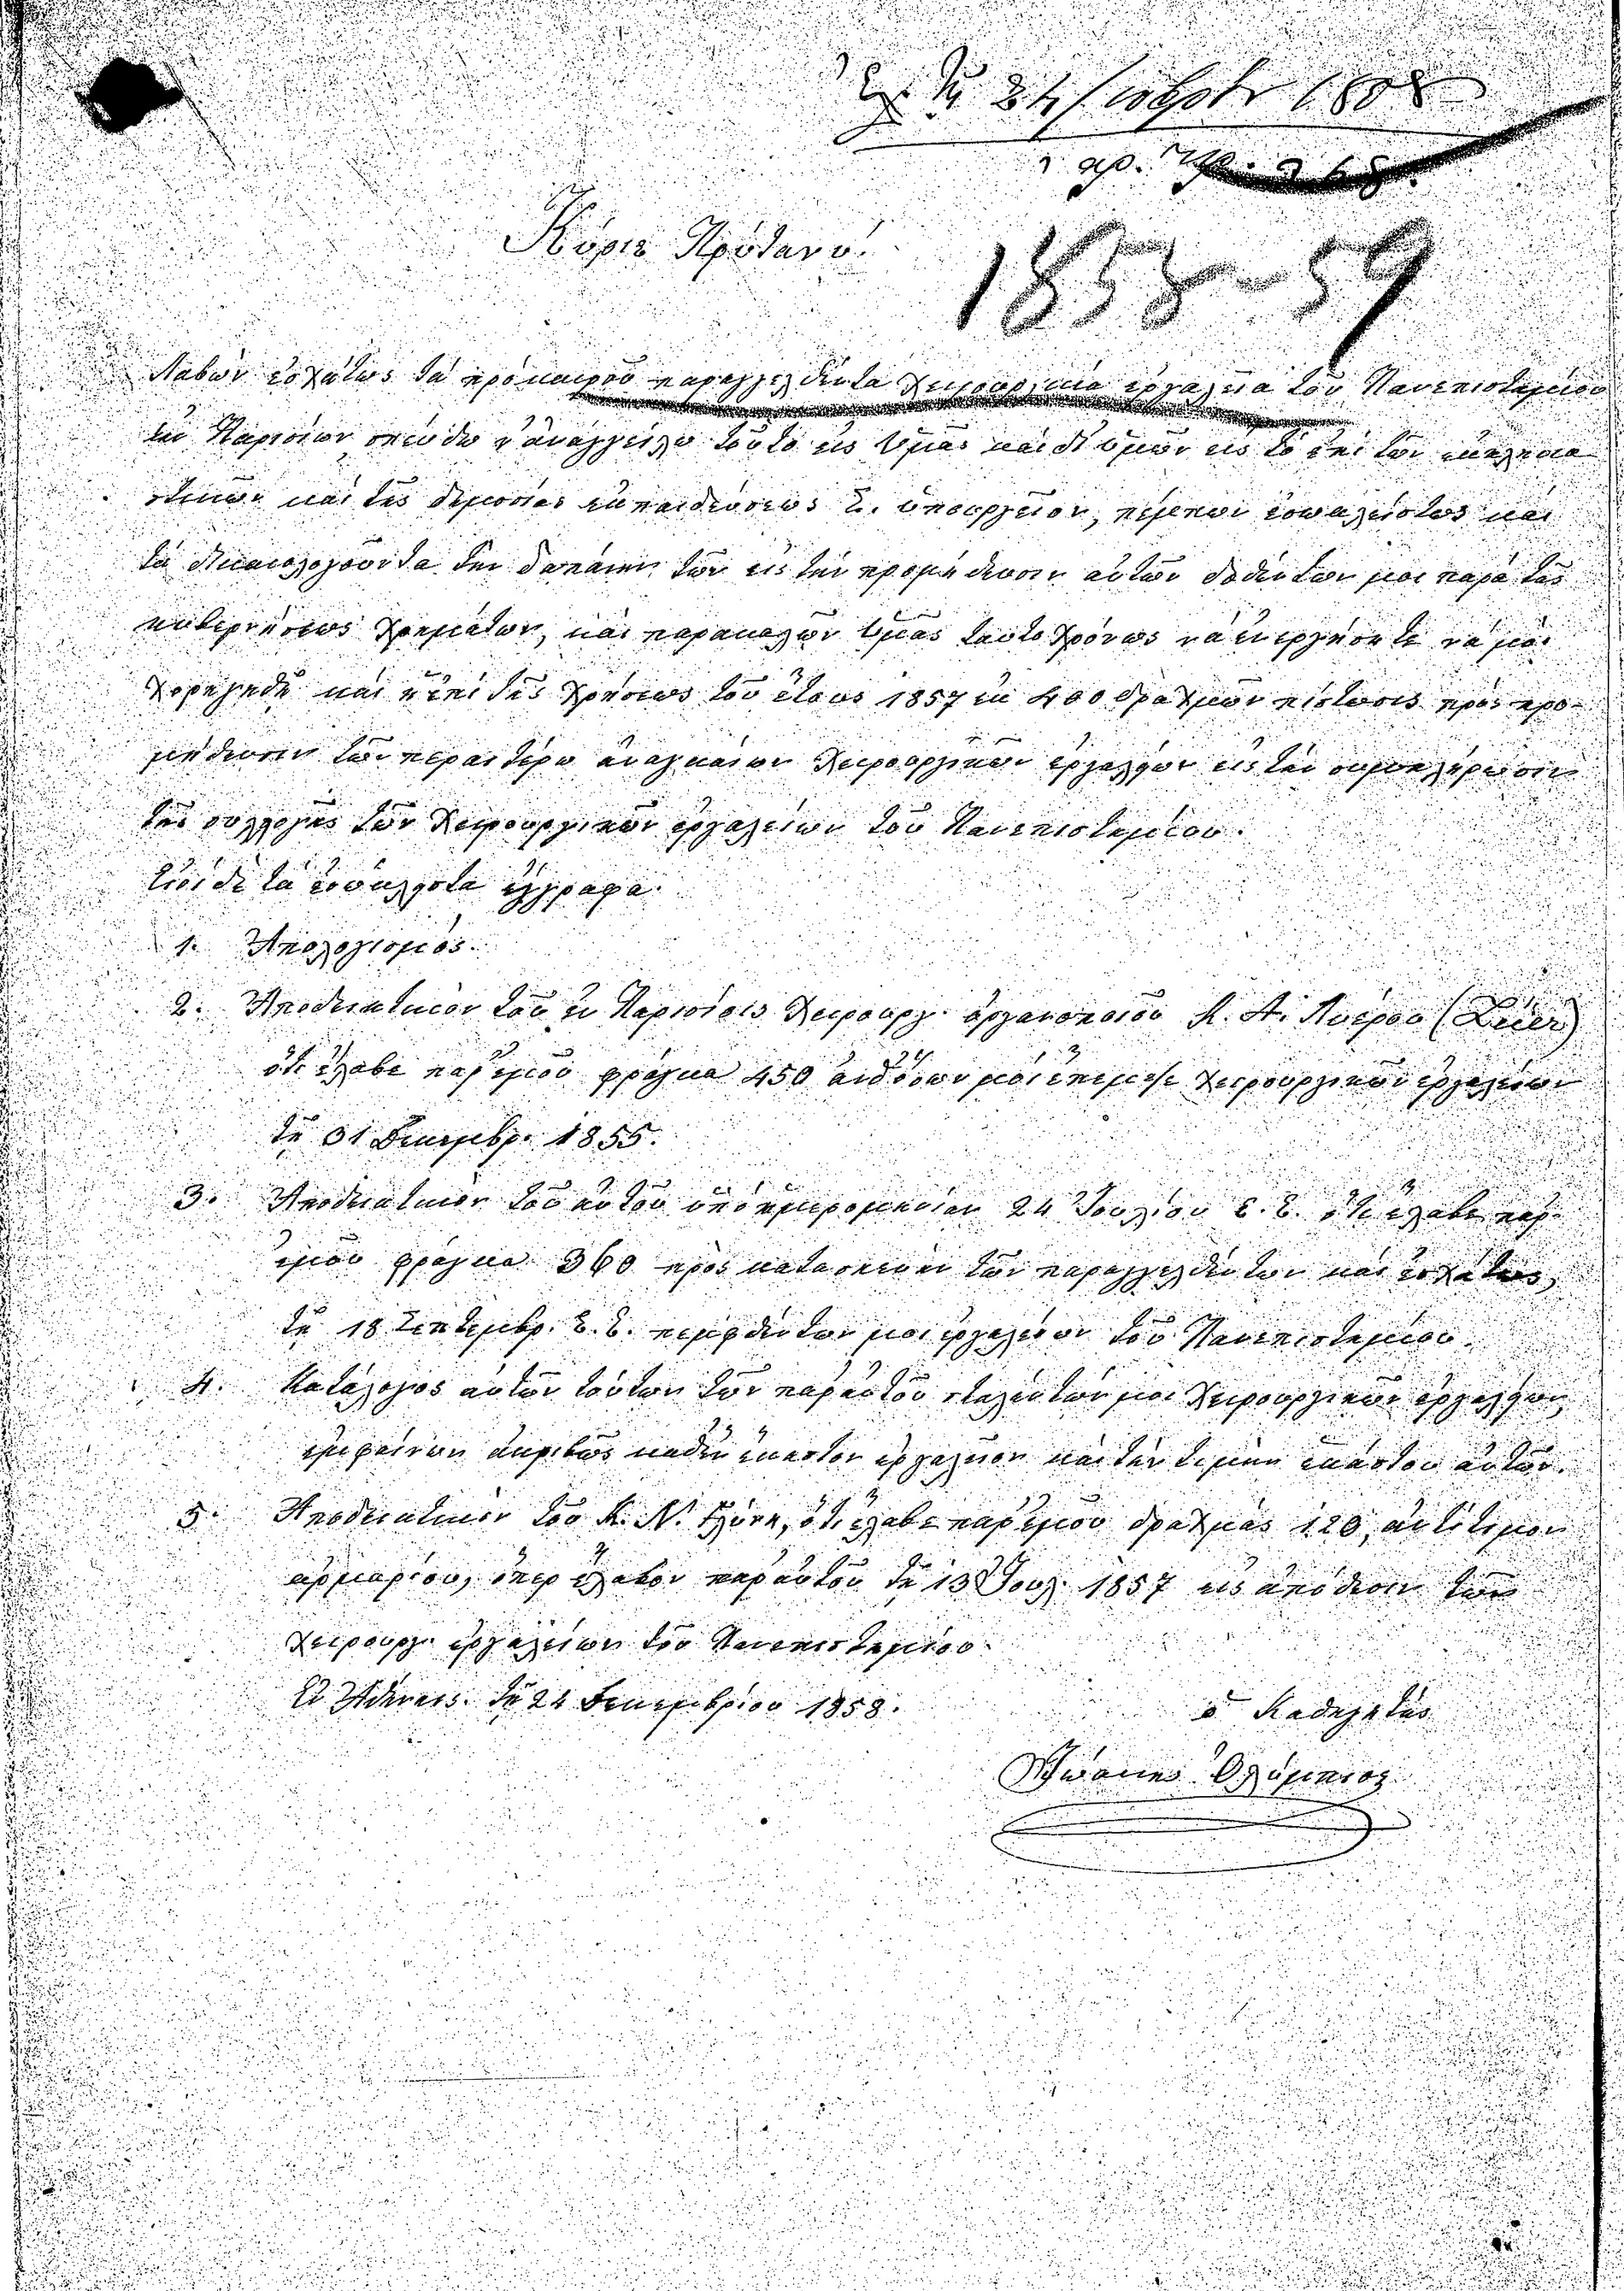 τῇ 24
ἀρ. πρ. 268.
Κύριε Πρύτανι!
1858-59
Λαβὼν ἐσχάτως τὰ πρὸ καιροῦ παραγγελθέντα χειρουργικὰ ἐργαλεῖα τοῦ Πανεπιστημίου
ἐκ Παρισίων σπεύδω ν' ἀναγγείλω τοῦτο εἰς Ὑμᾶς καὶ δι' ὑμῶν εἰς τὸ ἐπὶ τῶν ἐκκλησια-
στικῶν καὶ τῆς δημοσίας ἐκπαιδεύσεως Σ. ὑπουργεῖον, πέμπων ἐσωκλείστως καὶ
τὰ δικαιολογοῦντα τὴν δαπάνην τῶν εἰς τὴν προμήθευσιν αὐτῶν δοθέντων μοι παρὰ τῆς
κυβερνήσεως χρημάτων, καὶ παρακαλῶν Ὑμᾶς ταυτοχρόνως νὰ ἐνεργήσητε νὰ μοὶ
χορηγηθῇ καὶ ἡ ἐπὶ τῆς χρήσεως τοῦ ἔτους 1857 ἐκ 400 δραχμῶν πίστωσις πρὸς προ-
μήθευσιν τῶν περαιτέρω ἀναγκαίων χειρουργικῶν ἐργαλείων εἰς τὴν συμπλήρωσιν
τῆς συλλογῆς τῶν χειρουργικῶν ἐργαλείων τοῦ Πανεπιστημίου.
Εἰσὶ δὲ τὰ ἐσώκλειστα ἔγγραφα.
1. Ἀπολογισμός.
2. Ἀποδεικτικὸν τοῦ ἐν Παρισίοις χειρουργ. ὀργανοποιοῦ Κ. Α. Λυέρου (Lüer)
ὅτι ἔλαβε παρ' ἐμοῦ φράγκα 450 ἀνθ' ὅσων μοὶ ἔπεμψε χειρουργικῶν ἐργαλείων
τῇ 31 Δεκεμβρ. 1855.
3. Ἀποδεικτικὸν τοῦ αὐτοῦ ὑπὸ ἡμερομηνίαν 24 Ἰουλίου ἔ. ἔ. ὅτι ἔλαβε παρ'
ἐμοῦ φράγκα 360 πρὸς κατασκευὴν τῶν παραγγελθέντων καὶ ἐσχάτως,
τῇ 18 Σεπτεμβρ. ἔ. ἔ. πεμφθέντων μοι ἐργαλείων τοῦ Πανεπιστημίου.
4. Κατάλογος αὐτῶν τούτων τῶν παρ' αὐτοῦ σταλέντων μοι χειρουργικῶν ἐργαλείων,
ἐμφαίνων ἀκριβῶς καθὲν ἕκαστον ἐργαλεῖον καὶ τὴν τιμὴν ἑκάστου αὐτῶν.
5. Ἀποδεικτικὸν τοῦ Κ. Ν. ὅτι ἔλαβε παρ' ἐμοῦ δραχμὰς 120, ἀντίτιμον
ἁρμαρίου, ὅπερ ἔλαβον παρ' αὐτοῦ τῇ 13 Ἰουλ. 1857 εἰς ἀπόθεσιν τῶν
χειρουργ. ἐργαλείων τοῦ Πανεπιστημίου.
Ἐν Ἀθήναις. τῇ 24 Δεκεμβρίου 1858.
ὁ Καθηγητὴς
Ἰωάννης Ὀλύμπιος